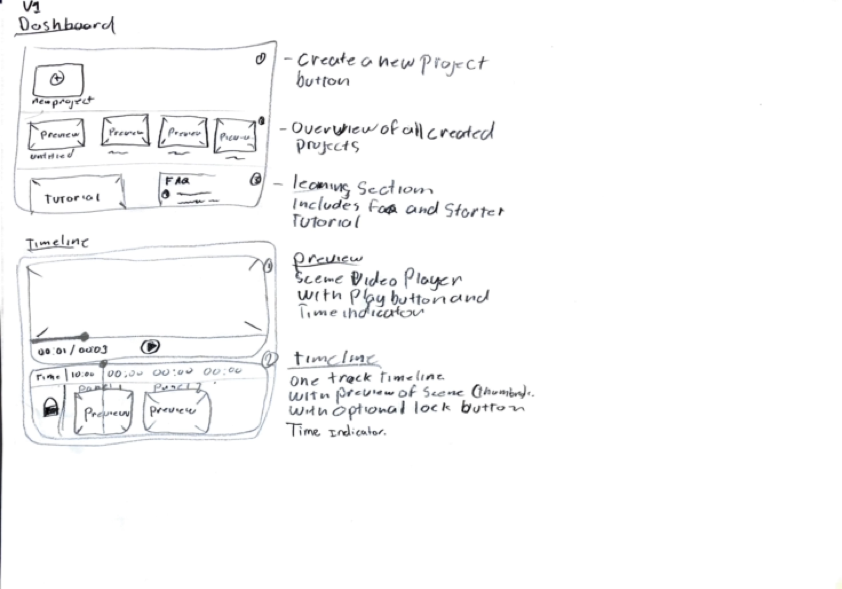 V1
Dashboard
① - Create a new project
button
new project
Preview Preview Preview Preview
untitled
- Overview of all created
projects
Tutorial
FAQ
③ - learning Section
Includes FAQ and Starter
Tutorial
Timeline
① Preview
Scene Video Player
with Play button and
Time indicator
00:01 / 00:03
② Timeline
Time 10:00 00:00 00:00 00:00
Panel 1 Panel 2
Preview Preview
one track Timeline
with preview of Scene
with optional lock button
Time Indicator.